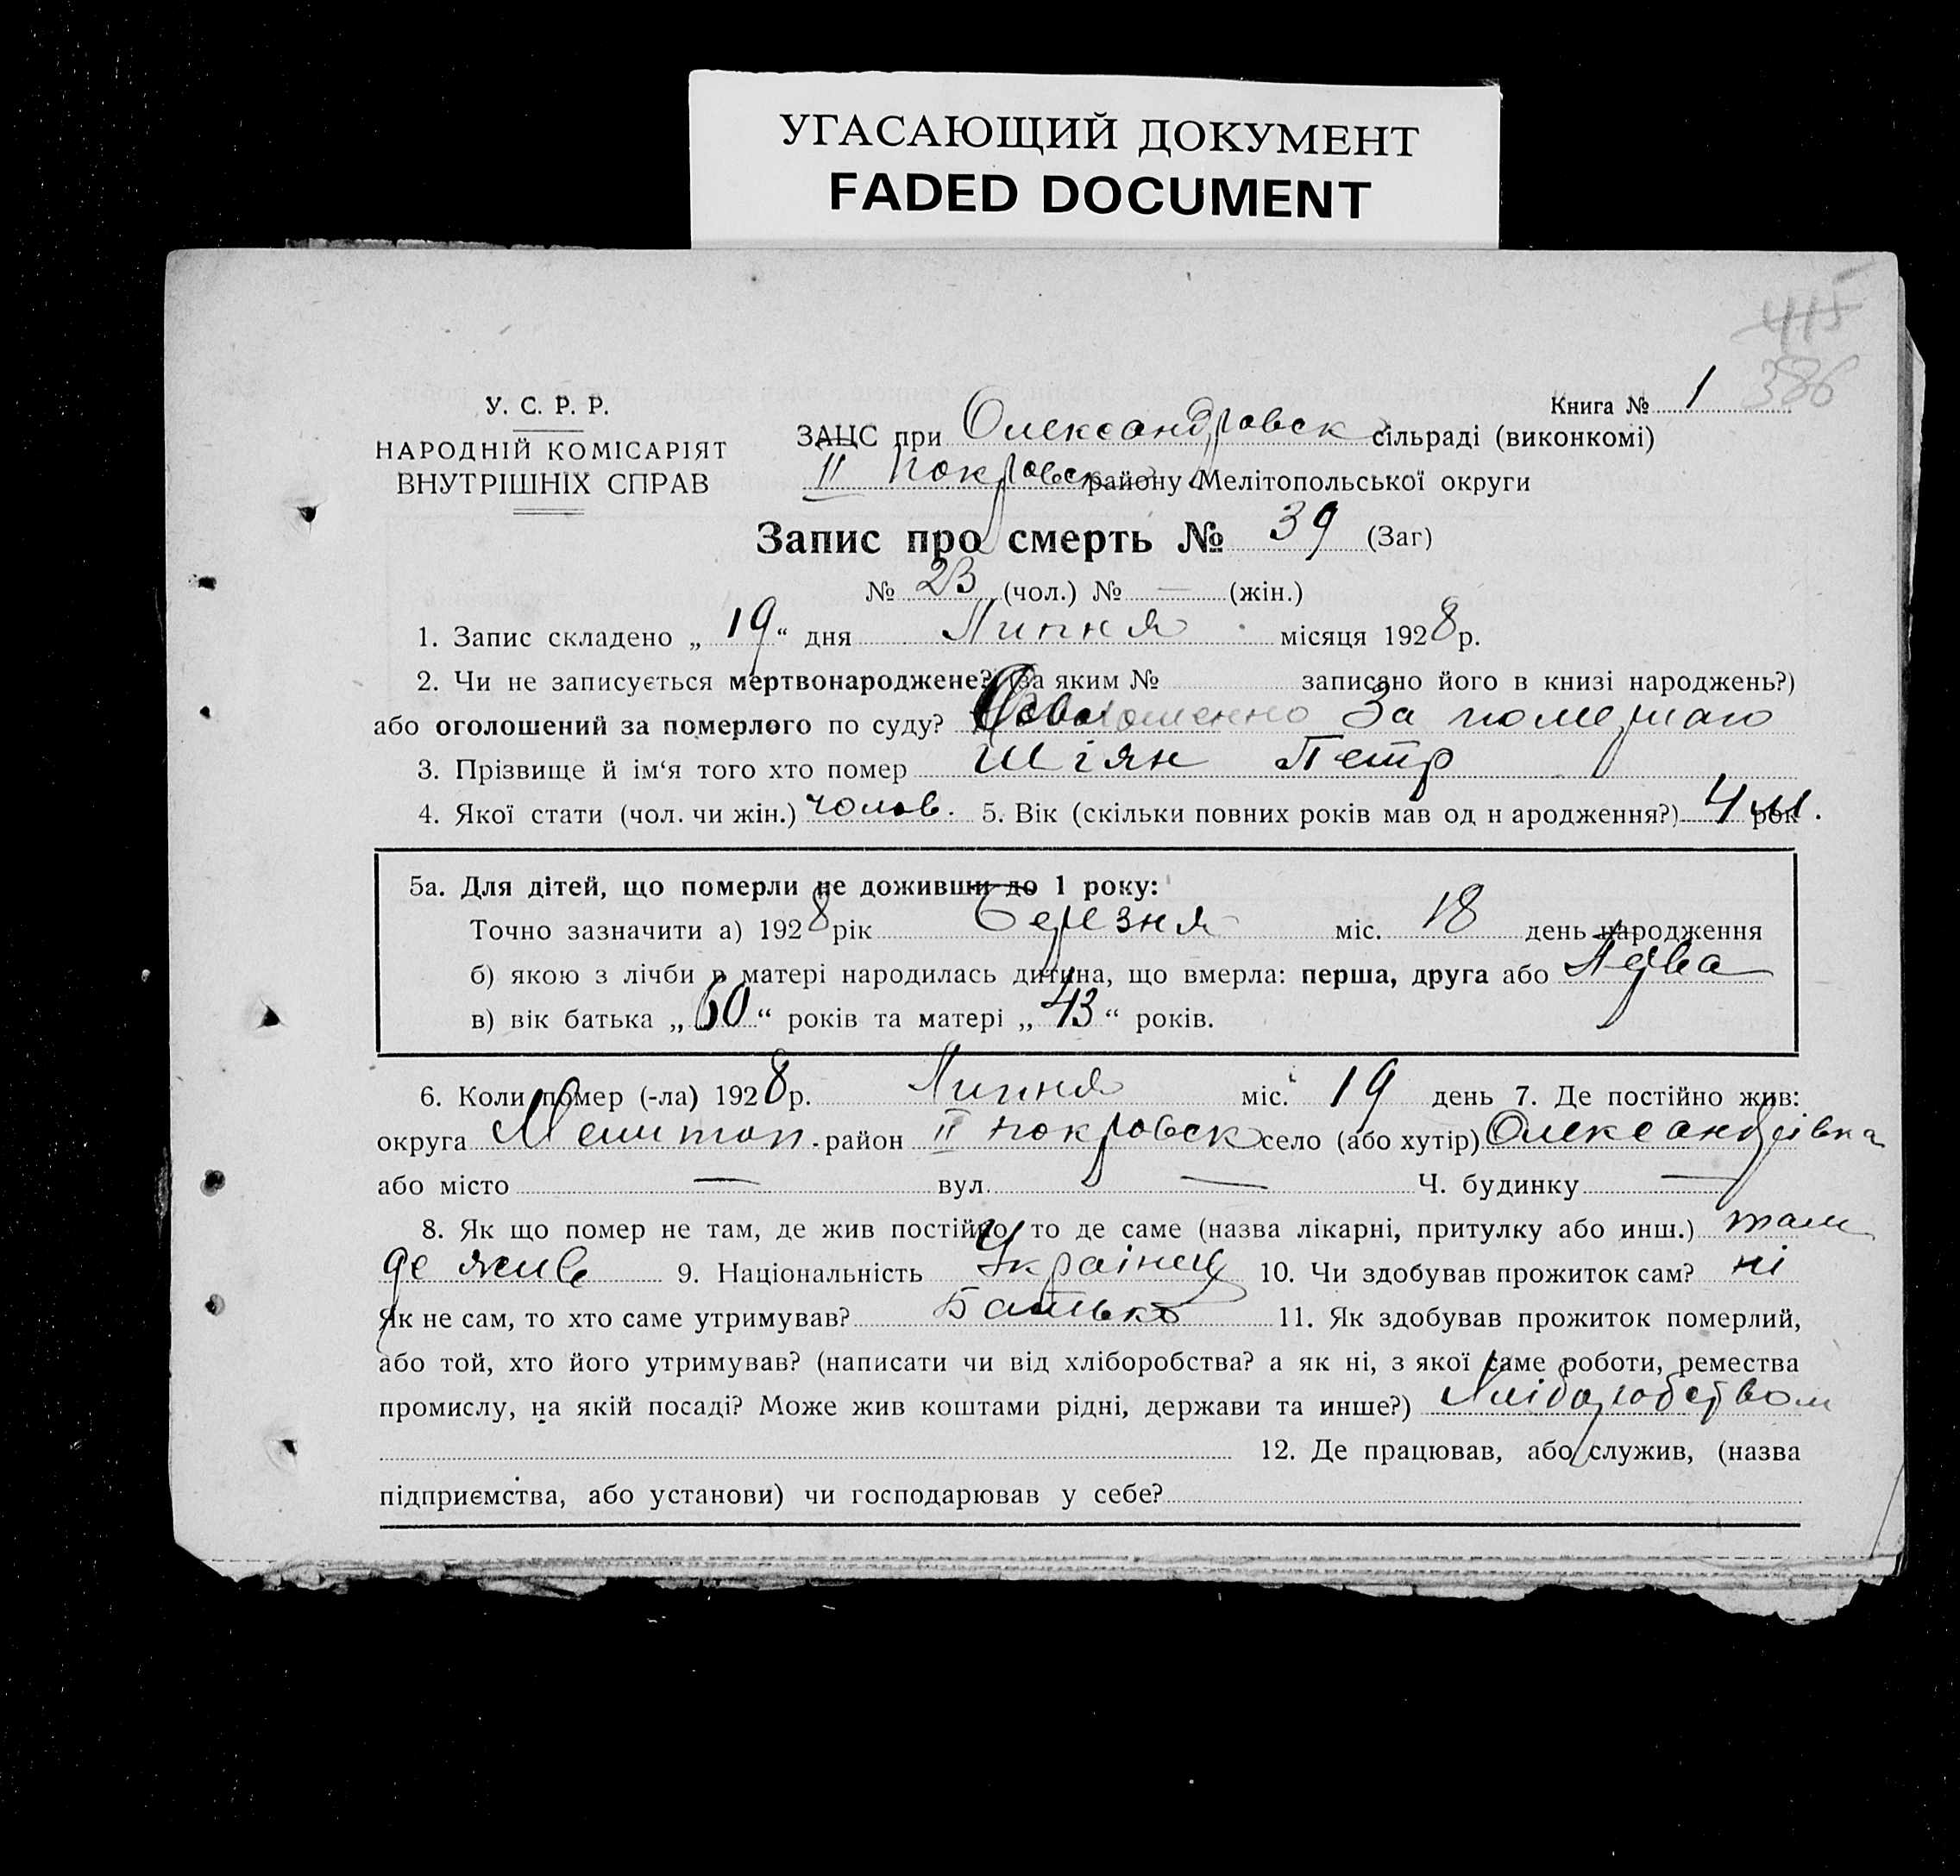 УГАСАЮЩИЙ ДОКУМЕНТ
FADED DOCUMENT
415
386
У. С. Р. Р.
НАРОДНІЙ КОМІСАРІЯТ
ВНУТРІШНІХ СПРАВ
Книга № 1
ЗАЦС при Олександровск сільраді (виконкомі)
II Покровськ району Мелітопольської округи
Запис про смерть № 39 (Заг)
№ 23 (чол.) № — (жін.)
1. Запис складено „ 19 “ дня Липня місяця 1928 р.
2. Чи не записується мертвонароджене? (за яким № записано його в книзі народжень?)
або оголошений за померлого по суду? за померлого
3. Прізвище й ім‘я того хто помер Шіян Петр
4. Якої стати (чол. чи жін.) чолов. 5. Вік (скільки повних років мав од н ародження?) 4 м. рок
5а. Для дітей, що померли не доживши до 1 року:
Точно зазначити а) 1928 рік Березня міс. 18 день народження
б) якою з лічби в матері народилась дитина, що вмерла: перша, друга або
в) вік батька „ 60 “ років та матері „ 43 “ років.
6. Коли помер (-ла) 1928 р. Липня міс. 19 день 7. Де постійно жив:
округа Мелитоп. район II Покровськ село (або хутір) Олександрівка
або місто — вул. — Ч. будинку —
8. Як що помер не там, де жив постійно, то де саме (назва лікарні, притулку або инш.) там
де жив 9. Національність Українец 10. Чи здобував прожиток сам? ні
Як не сам, то хто саме утримував? Батько 11. Як здобував прожиток померлий,
або той, хто його утримував? (написати чи від хліборобства? а як ні, з якої саме роботи, ремества
промислу, на якій посаді? Може жив коштами рідні, держави та инше?) Хліборобством
12. Де працював, або служив, (назва
підприємства, або установи) чи господарював у себе?